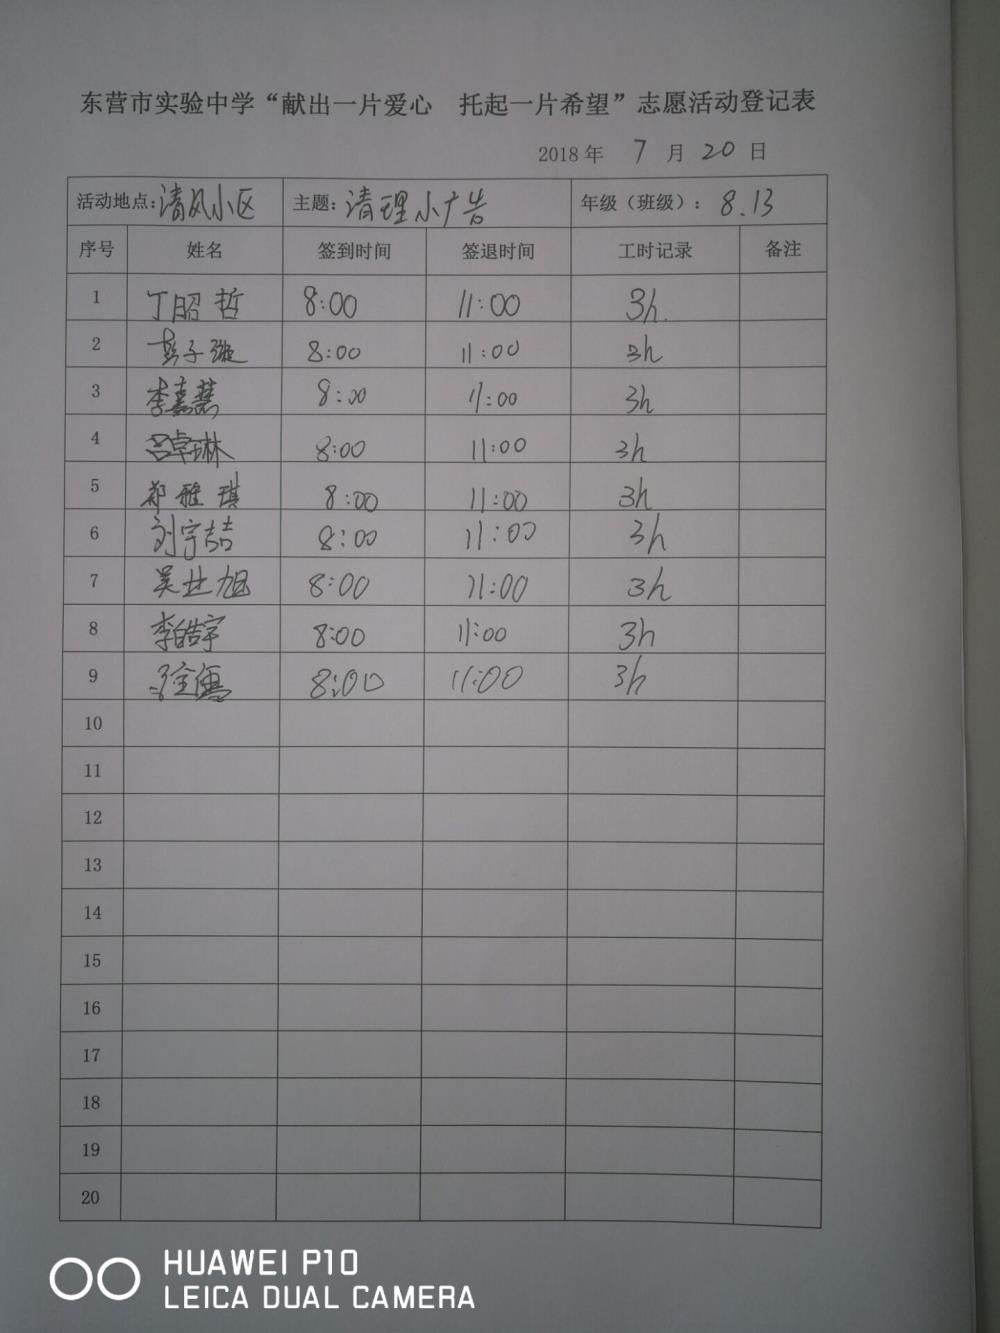 东营市实验中学“献出一片爱心 托起一片希望”志愿活动登记表
2018 年 7 月 20 日
活动地点:清风小区 主题:清理小广告 年级（班级）: 8.13
序号 姓名 签到时间 签退时间 工时记录 备注
1 丁昭哲 8:00 11:00 3h.
2 彭子 8:00 11:00 3h
3 李嘉慧 8:00 11:00 3h
4 吕卓琳 8:00 11:00 3h
5 郑雅琪 8:00 11:00 3h
6 刘宇喆 8:00 11:00 3h
7 吴 旭 8:00 11:00 3h
8 李皓宇 8:00 11:00 3h
9 8:00 11:00 3h
10
11
12
13
14
15
16
17
18
19
20
HUAWEI P10
LEICA DUAL CAMERA